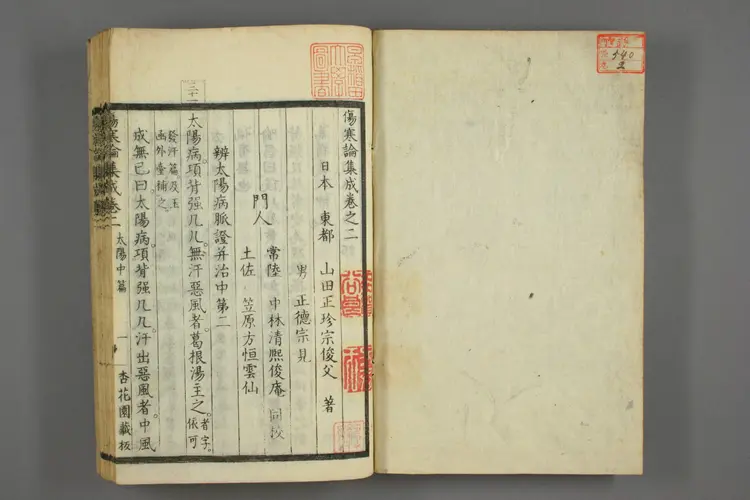 傷寒論集成卷之二
日本 東都 山田正珍宗俊文 著
男 正德宗見
門人
常陸 中林清熙俊庵 同校
土佐 笠原方恒雲仙
辨太陽病脈證并治中第二
三十一
太陽病項背強几几無汗惡風者葛根湯主之。者字依可
發汗篇及玉
函外臺補之
成無已曰太陽病項背強几几汗出惡風者中風
傷寒論集成卷二 太陽中篇 一 杏花園藏板
540
2